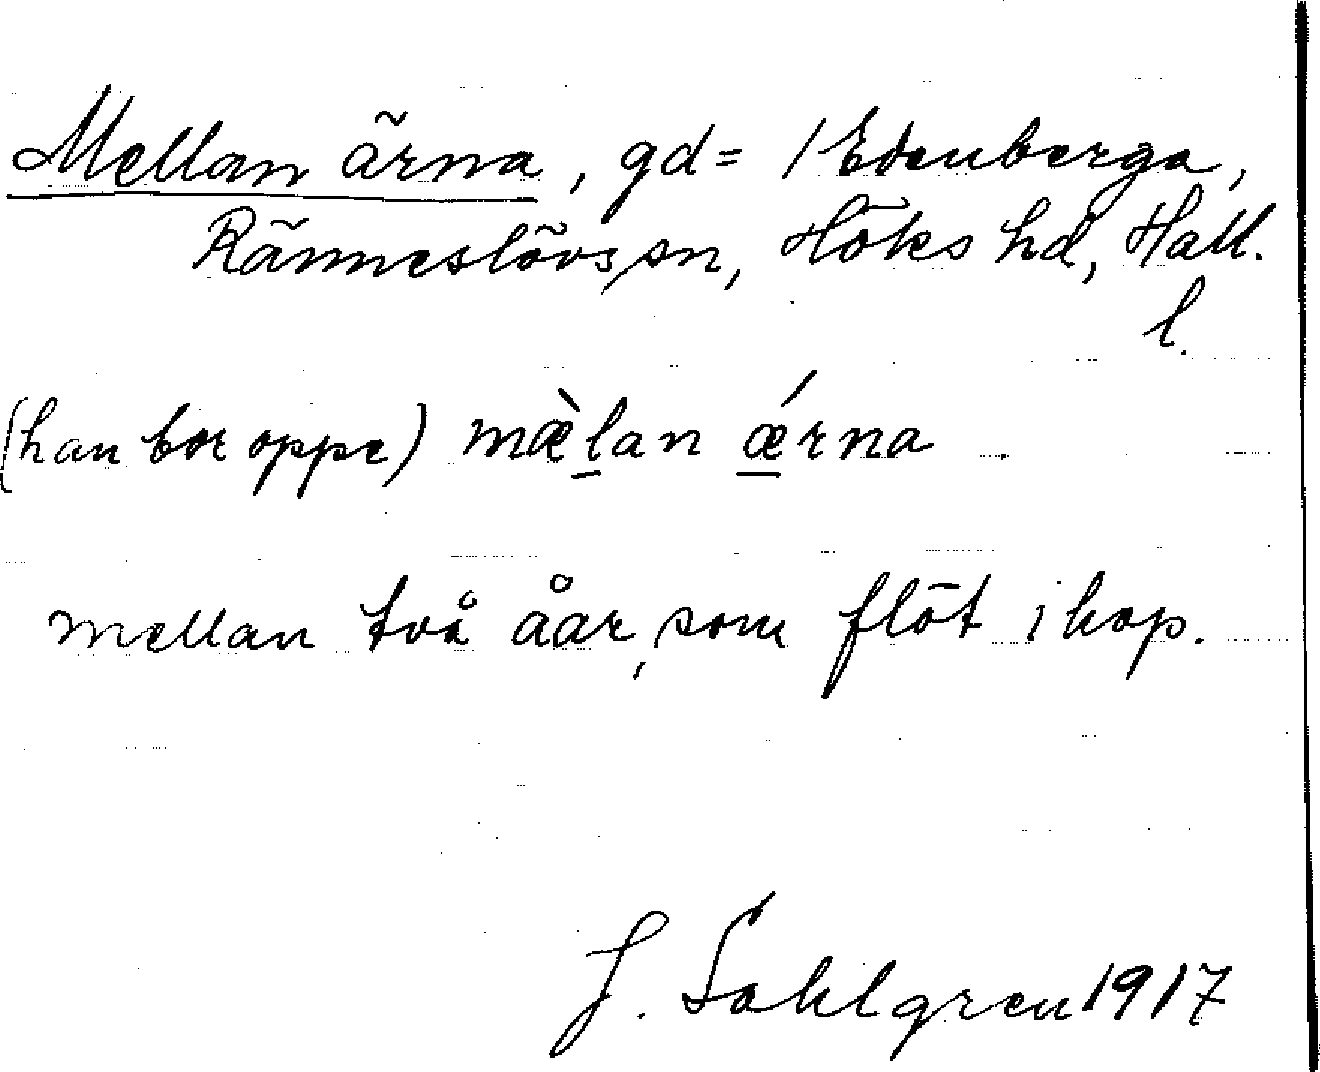 Mellan ärna, gd = 1 Edenberga,
Ränneslövs sn, Höks hd, Hall.
l.
(han bor oppe) mæ̀l̠an ǽ̠rna
mellan två åar, som flöt ihop.
J. Sahlgren 1917